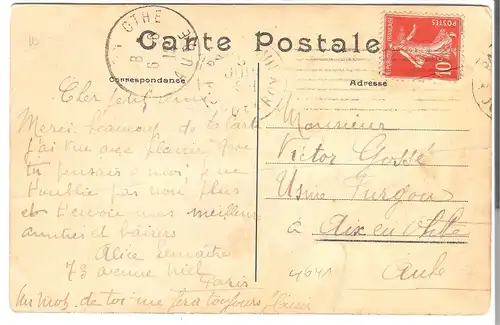 Carte Postale
Correspondance
Adresse
Cher petit ami
Merci beaucoup de ta carte
j'ai vu avec plaisir que
tu pensais a moi, je ne
t'oublie pas non plus
et t'envoie mes meilleurs
amities et baisers
Alice Lemaitre
73 avenue Niel
Paris
un mot de toi me fera toujours plaisir
Monsieur
Victor Gossé
Usine Furgon
à Aix en Othe
Aube
POSTES
10
OTHE
AUBE